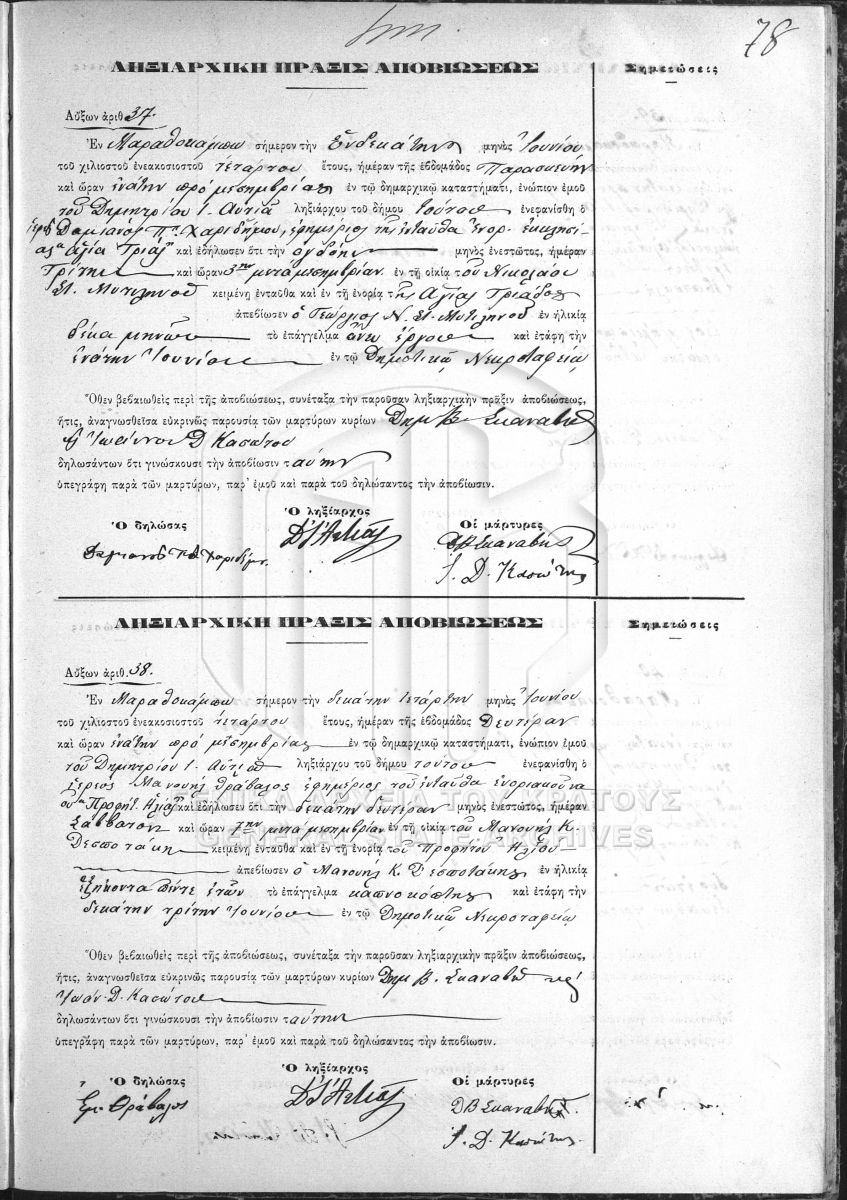 78
ΛΗΞΙΑΡΧΙΚΗ ΠΡΑΞΙΣ ΑΠΟΒΙΩΣΕΩΣ
Σημειώσεις
Αὔξων ἀριθ. 37.
Ἐν Μαραθοκάμπῳ σήμερον τὴν Ἑνδεκάτην μηνὸς Ἰουνίου
τοῦ χιλιοστοῦ ἐνεακοσιοστοῦ τετάρτου ἔτους, ἡμέραν τῆς ἑβδομάδος Παρασκευὴν
καὶ ὥραν ἐνάτην πρὸ μεσημβρίας ἐν τῷ δημαρχικῷ καταστήματι, ἐνώπιον ἐμοῦ
τοῦ Δημητρίου Ι. ληξιάρχου τοῦ δήμου τούτου ἐνεφανίσθη ὁ
Δαμιανὸς Ππ. Χαριδήμου, ἐφημέριος τῆς ἐνταῦθα ἐνορ. ἐκκλησί-
ας Ἁγία Τριὰς καὶ ἐδήλωσεν ὅτι τὴν ὀγδόην μηνὸς ἐνεστῶτος, ἡμέραν
Τρίτην καὶ ὥραν 3ην μετὰ μεσημβρίαν ἐν τῇ οἰκίᾳ τοῦ Νικολάου
Στ. Μυτιληνοῦ κειμένῃ ἐνταῦθα καὶ ἐν τῇ ἐνορίᾳ τῆς Ἁγίας Τριάδος
ἀπεβίωσεν ὁ Γεώργιος Ν. Στ. Μυτιληνοῦ ἐν ἡλικίᾳ
δέκα μηνῶν τὸ ἐπάγγελμα ἄνευ ἔργου καὶ ἐτάφη τὴν
ἐνάτην Ἰουνίου ἐν τῷ Δημοτικῷ Νεκροταφείῳ
Ὅθεν βεβαιωθεὶς περὶ τῆς ἀποβιώσεως, συνέταξα τὴν παροῦσαν ληξιαρχικὴν πρᾶξιν ἀποβιώσεως,
ἥτις, ἀναγνωσθεῖσα εὐκρινῶς παρουσίᾳ τῶν μαρτύρων κυρίων Δημ Β. Σκαναβῆ
Ἰωάννου Δ Κασώτου
δηλωσάντων ὅτι γινώσκουσι τὴν ἀποβίωσιν ταύτην
ὑπεγράφη παρὰ τῶν μαρτύρων, παρ' ἐμοῦ καὶ παρὰ τοῦ δηλώσαντος τὴν ἀποβίωσιν.
Ὁ δηλώσας
Ὁ ληξίαρχος
Οἱ μάρτυρες
Δαμιανὸς Χαριδήμ.
ΔΒΣκαναβῆς
Ι. Δ. Κασώτης
ΛΗΞΙΑΡΧΙΚΗ ΠΡΑΞΙΣ ΑΠΟΒΙΩΣΕΩΣ
Σημειώσεις
Αὔξων ἀριθ. 38.
Ἐν Μαραθοκάμπῳ σήμερον τὴν δεκάτην τετάρτην μηνὸς Ἰουνίου
τοῦ χιλιοστοῦ ἐνεακοσιοστοῦ τετάρτου ἔτους, ἡμέραν τῆς ἑβδομάδος Δευτέραν
καὶ ὥραν ἐνάτην πρὸ μεσημβρίας ἐν τῷ δημαρχικῷ καταστήματι, ἐνώπιον ἐμοῦ
τοῦ Δημητρίου Ι. ληξιάρχου τοῦ δήμου τούτου ἐνεφανίσθη ὁ
Ἱερεὺς Μανουὴλ Θράβαλος ἐφημέριος τοῦ ἐνταῦθα ἐνοριακοῦ να
οῦ Προφήτ. Ἠλίας καὶ ἐδήλωσεν ὅτι τὴν δεκάτην δευτέραν μηνὸς ἐνεστῶτος, ἡμέραν
Σάββατον καὶ ὥραν 7ην μετὰ μεσημβρίαν ἐν τῇ οἰκίᾳ τοῦ Μανουὴλ Κ.
Δεσποτάκη κειμένῃ ἐνταῦθα καὶ ἐν τῇ ἐνορίᾳ τοῦ Προφήτου Ηλιού
ἀπεβίωσεν ὁ Μανουὴλ Κ. Δεσποτάκης ἐν ἡλικίᾳ
ἑξήκοντα πέντε ἐτῶν τὸ ἐπάγγελμα καπνοκόπτης καὶ ἐτάφη τὴν
δεκάτην τρίτην Ἰουνίου ἐν τῷ Δημοτικῷ Νεκροταφείῳ
Ὅθεν βεβαιωθεὶς περὶ τῆς ἀποβιώσεως, συνέταξα τὴν παροῦσαν ληξιαρχικὴν πρᾶξιν ἀποβιώσεως,
ἥτις, ἀναγνωσθεῖσα εὐκρινῶς παρουσίᾳ τῶν μαρτύρων κυρίων Δημ Β. Σκαναβῆ καὶ
Ἰωάν. Δ. Κασώτου
δηλωσάντων ὅτι γινώσκουσι τὴν ἀποβίωσιν ταύτην
ὑπεγράφη παρὰ τῶν μαρτύρων, παρ' ἐμοῦ καὶ παρὰ τοῦ δηλώσαντος τὴν ἀποβίωσιν.
Ὁ δηλώσας
Ὁ ληξίαρχος
Οἱ μάρτυρες
Εμ. Θράβαλος
ΔΒΣκαναβῆς
Ι. Δ. Κασώτης
ΓΕΝΙΚΑ ΑΡΧΕΙΑ ΤΟΥ ΚΡΑΤΟΥΣ
GENERAL STATE ARCHIVES